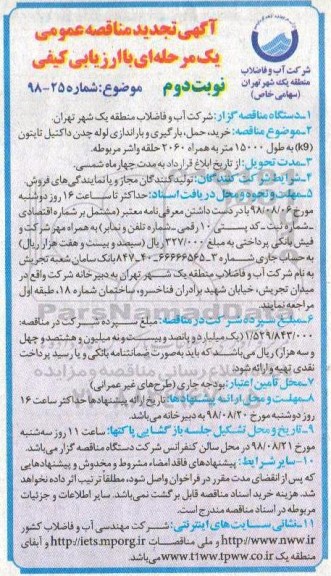 آگهی تجدید مناقصه عمومی
یک مرحله‌ای با ارزیابی کیفی
نوبت دوم
موضوع: شماره ۲۵-۹۸
شرکت آب و فاضلاب
منطقه یک شهر تهران
(سهامی خاص)
۱-دستگاه مناقصه گزار: شرکت آب و فاضلاب منطقه یک شهر تهران.
۲-موضوع مناقصه: خرید، حمل، بارگیری و باراندازی لوله چدن داکتیل تایتون
(k9) به طول ۱۵۰۰۰ متر به همراه ۲۰۶۰ حلقه واشر مربوطه.
۳-مدت تحویل: از تاریخ ابلاغ قرارداد به مدت چهار ماه شمسی.
۴-شرایط شرکت کنندگان: تولیدکنندگان مجاز و یا نمایندگی های فروش.
۵-مهلت و نحوه و محل دریافت اسناد: حداکثر تا ساعت ۱۶ روز دوشنبه
مورخ ۹۸/۰۸/۰۶ با در دست داشتن معرفی نامه معتبر (مشتمل بر شماره اقتصادی
-شماره ثبت-کد پستی ۱۰ رقمی-شماره تلفن و نمابر) به همراه مهر شرکت و
فیش بانکی پرداختی به مبلغ ۳۲۷/۰۰۰ ریال (سیصد و بیست و هفت هزار ریال)
به حساب جاری شماره ۳-۶۶۶۶۶۵۶۵-۸۴۷-۴۰ بانک سامان شعبه تجریش
به نام شرکت آب و فاضلاب منطقه یک شهر تهران به دبیرخانه شرکت واقع در
میدان تجریش، خیابان شهید برادران فناخسرو، ساختمان شماره ۱۸، طبقه اول
مراجعه نمایند.
۶-مبلغ سپرده شرکت در مناقصه: مبلغ سپرده شرکت در مناقصه:
۱/۵۲۹/۸۴۳/۰۰۰ (یک میلیارد و پانصد و بیست و نه میلیون و هشتصد و چهل
و سه هزار) ریال می باشد که باید به صورت ضمانتنامه بانکی و یا رسید پرداخت
نقدی تهیه و ارائه شود.
۷-محل تامین اعتبار: بودجه جاری (طرح های غیر عمرانی)
۸-مهلت و محل ارائه پیشنهادها: تاریخ ارائه پیشنهادها حداکثر ساعت ۱۶
روز دوشنبه مورخ ۹۸/۰۸/۲۰ به دبیرخانه می باشد.
۹-تاریخ و محل تشکیل جلسه بازگشایی پاکتها: ساعت ۱۱ روز سه شنبه
مورخ ۹۸/۰۸/۲۱ در محل سالن کنفرانس شرکت دستگاه مناقصه گزار می باشد.
۱۰-سایر شرایط: پیشنهادهای فاقد امضاء مشروط و مخدوش و پیشنهادهایی
که پس از انقضای مدت مقرر در فراخوان واصل شود، مطلقاً ترتیب اثر داده نخواهد
شد. هزینه خرید اسناد مناقصه قابل برگشت نمی باشد. سایر اطلاعات و جزئیات
مربوطه در اسناد مناقصه مندرج است.
۱۱-نشانی سایت های اینترنتی: شرکت مهندسی آب و فاضلاب کشور
http://www.nww.ir و ملی مناقصات http://iets.mporg.ir و آبفای
منطقه یک www.t1ww.tpww.co.ir می باشد.